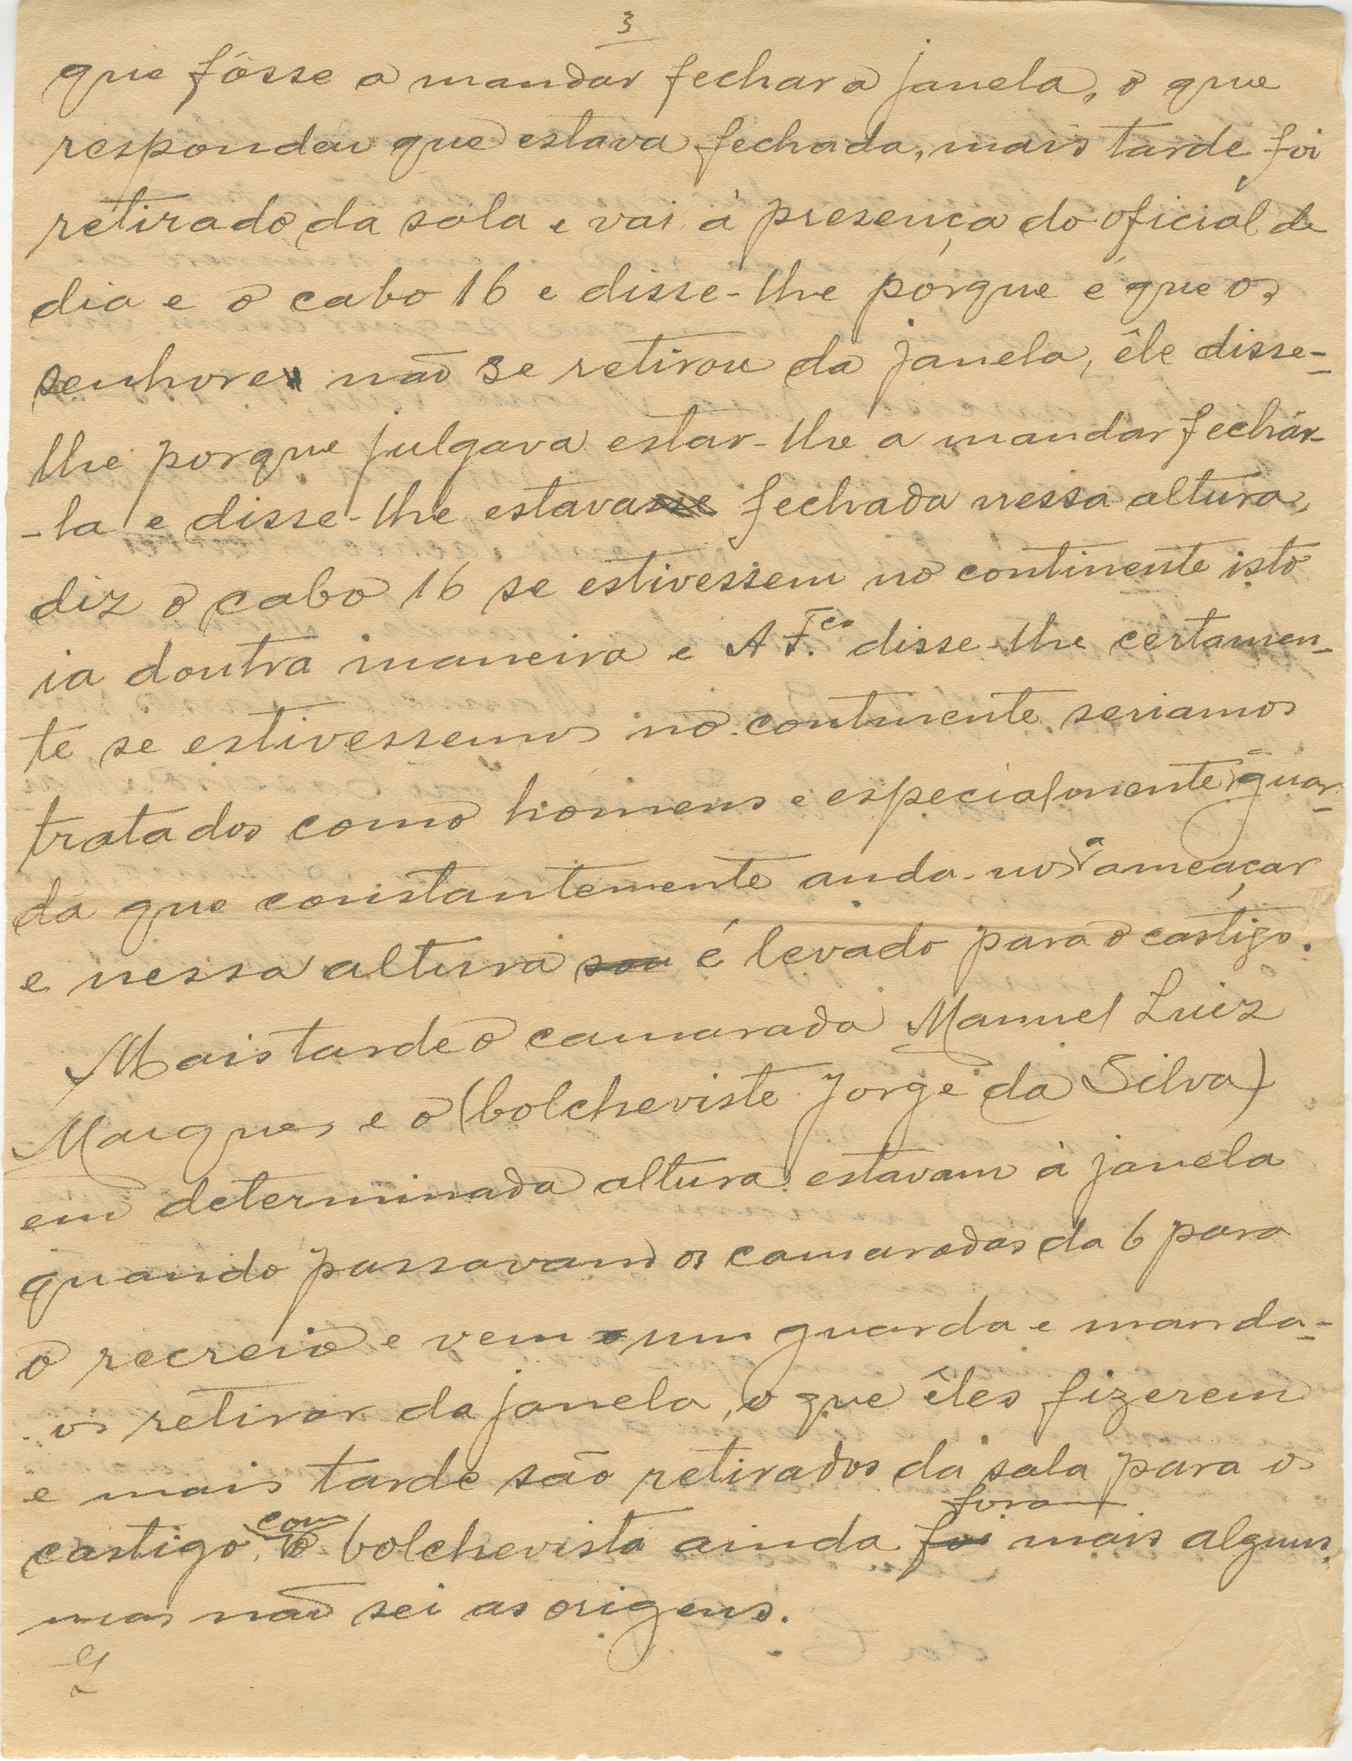 3
que fôsse a mandar fechar a janela, o que
respondeu que estava fechada, mais tarde foi
retirado da sala e vai á presença do oficial de
dia e o cabo 16 e disse-lhe pórque é que os
senhores não se retirou da janela, êle disse-
lhe porque julgava estar-lhe a mandar fechár-
-la e disse-lhe estava fechada nessa altura,
diz o cabo 16 se estivessem no continente isto
ia doutra maneira e A F.co disse-lhe certamen-
te se estivessemos no continente seriamos
tratados como homens e especialmente guar-
da que constantemente anda-nos a ameaçar
e nessa altura sou é levado para o castigo.
Mais tarde o camarada Manuel Luiz
Marques e o (bolcheviste Jorge da Silva)
em determinada altura estavam á janela
quando passavam os camaradas da 6 para
o recreio e vem um guarda e manda-
os retirar da janela, o que êles fizerem
e mais tarde são retirados da sala para o
castigo, com o bolchevista ainda foi foram mais alguns,
mas não sei as origens.